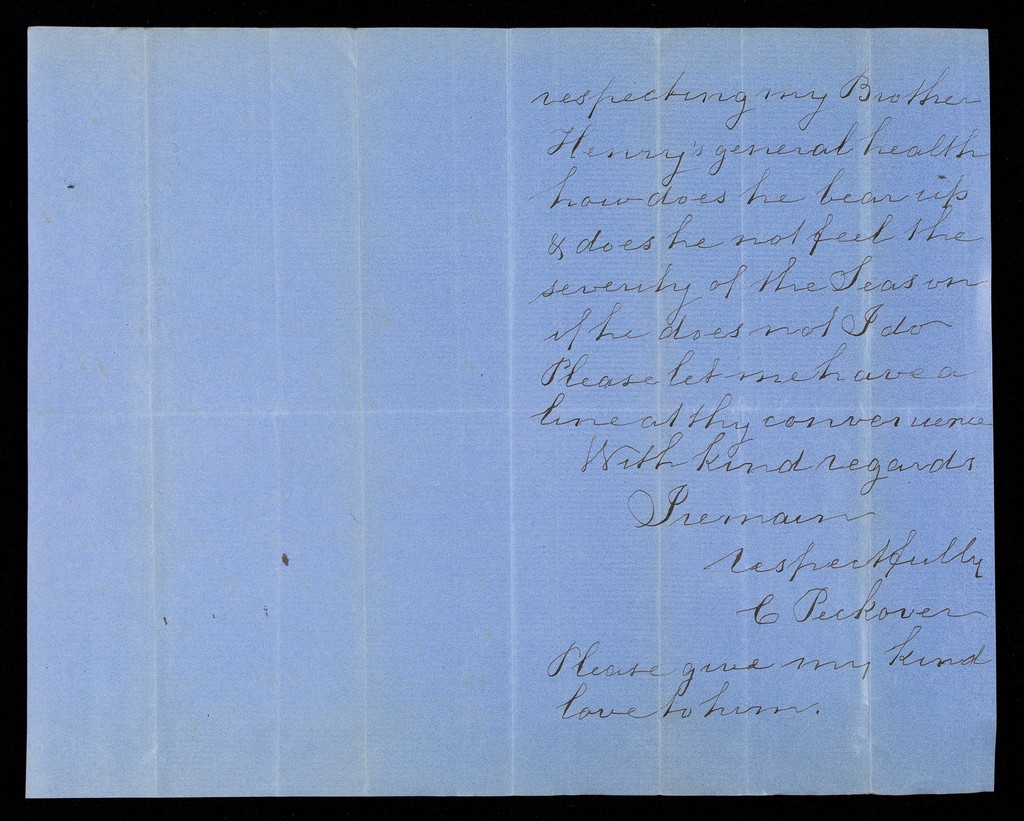 respecting my Brother
Henry's general health
how does he bear up
& does he not feel the
severity of the Season
if he does not I do
Please let me have a
line at thy convenience
With kind regards
I remain
respectfully
C Peckover
Please give my kind
love to him.